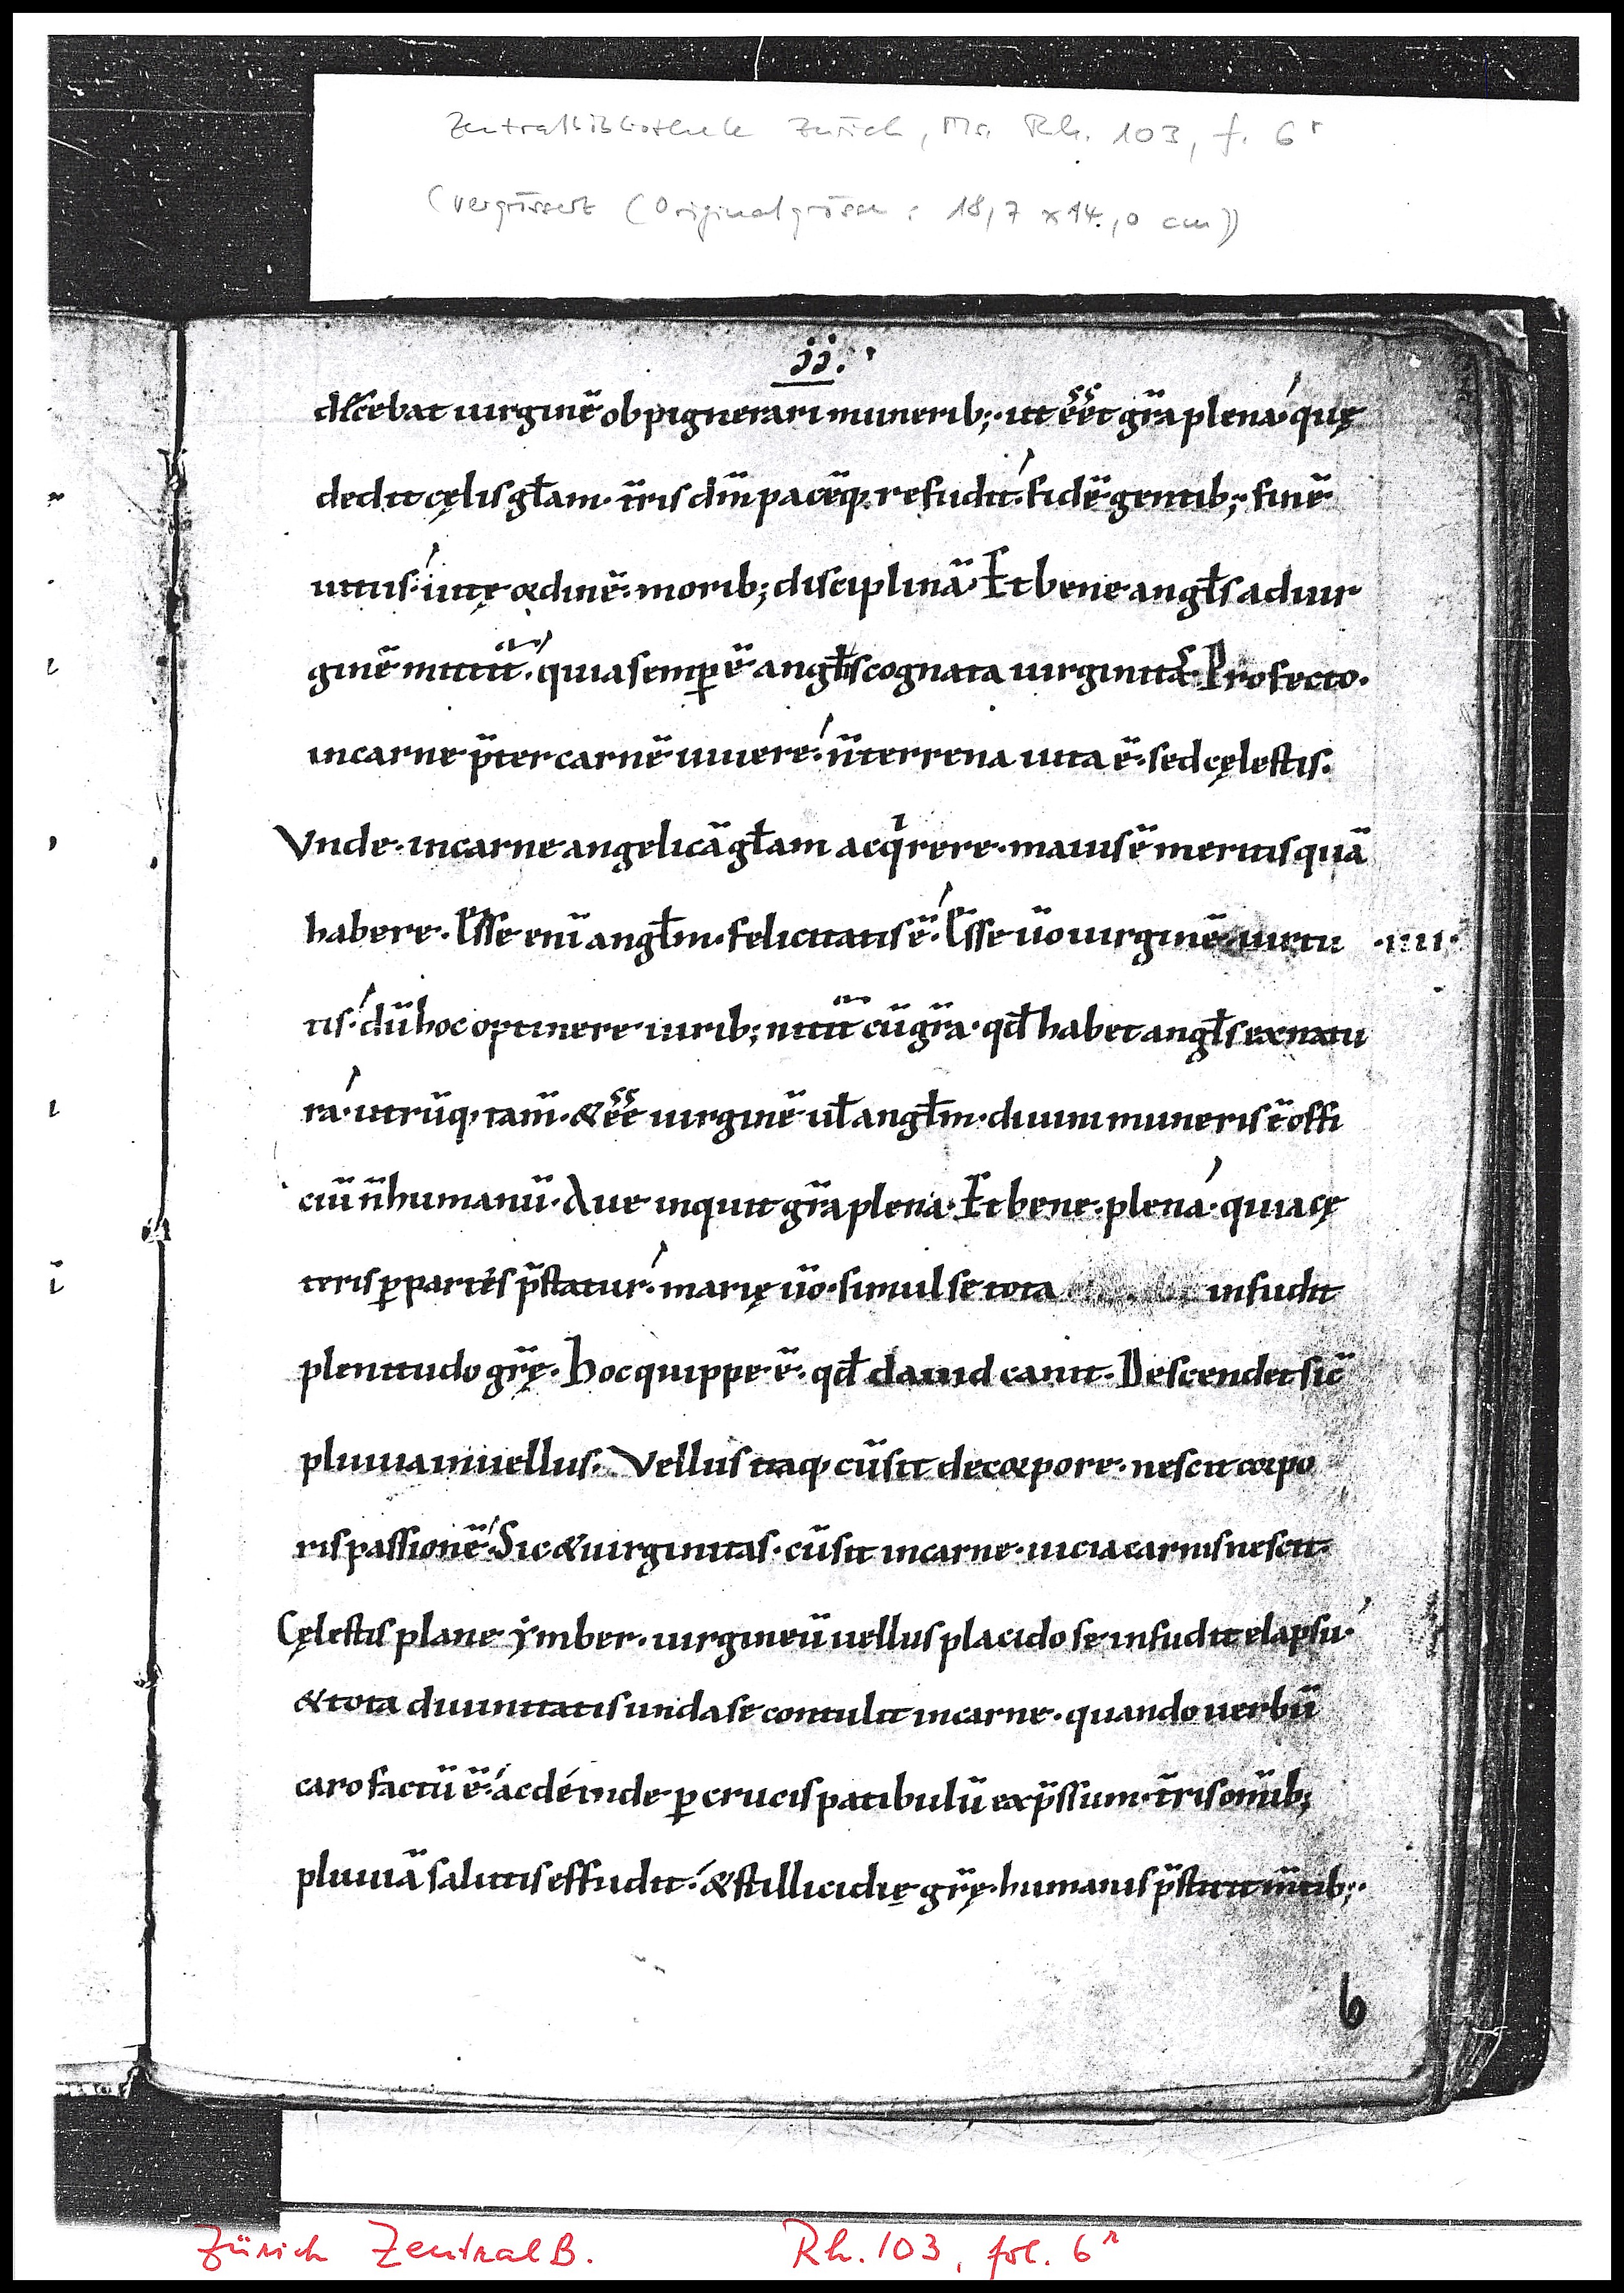 Zentralbibliothek Zürich, Ms. Rh. 103, f. 6r
(vergrössert (Originalgrösse: 18,7 x 14,0 cm))
ii.
decebat uirginē obpignerari munerib; · ut ēēt gr̄a plena · quę
dedit cęlis gł̄am · tr̄is dm̄ pacēq; refudit · fidē gentib; · finē
uitiis · uitę ordinē · morib; disciplinā · Et bene angłs ad uir
ginē mittit̄ · quia semꝑ ē angłis cognata uirginitas · Profecto ·
in carne p̄ter carnē uiuere · n̄ terrena uita ē · sed cęlestis ·
Vnde · in carne angelicā gł̄am acq̇rere · maius ē meritis quā
habere · Esse eni ̄ angłm · felicitatis ē · Esse ū̄o uirginē · uirtu · IIII ·
tis · dū hoc optinere uirib; nitit̄ cū gr̄a · qd̄ habet angłs ex natu
ra · utrūq; tam̄ · & ēē uirginē uł angłm · diuini muneris ē offi
ciū n̄ humanū · Aue inquit gr̄a plena · Et bene · plena · quia cę
teris ꝑ partes p̄statur · marię ūo · simul se tota infudit
plenitudo gr̄ę · Hoc quippe ē · qd̄ dauid canit · Descendet sic̄
pluuia in uellus · Vellus itaq; cū sit de corpore · nescit corpo
ris passionē · Sic & uirginitas · cū sit in carne · uicia carnis nescit ·
Cęlestis plane ymber · uirgineū uellus placido se infudit elapsu ·
& tota diuinitatis unda se contulit in carne · quando uerbū
caro factū ē · ac deinde ꝑ crucis patibulū exp̄ssum · tr̄is om̄ib;
pluuiā salutis effudit · & stillicidię gr̄ę · humanis p̄stitit m̄tib; ·
6
Zürich ZentralB. Rh. 103, fol. 6r